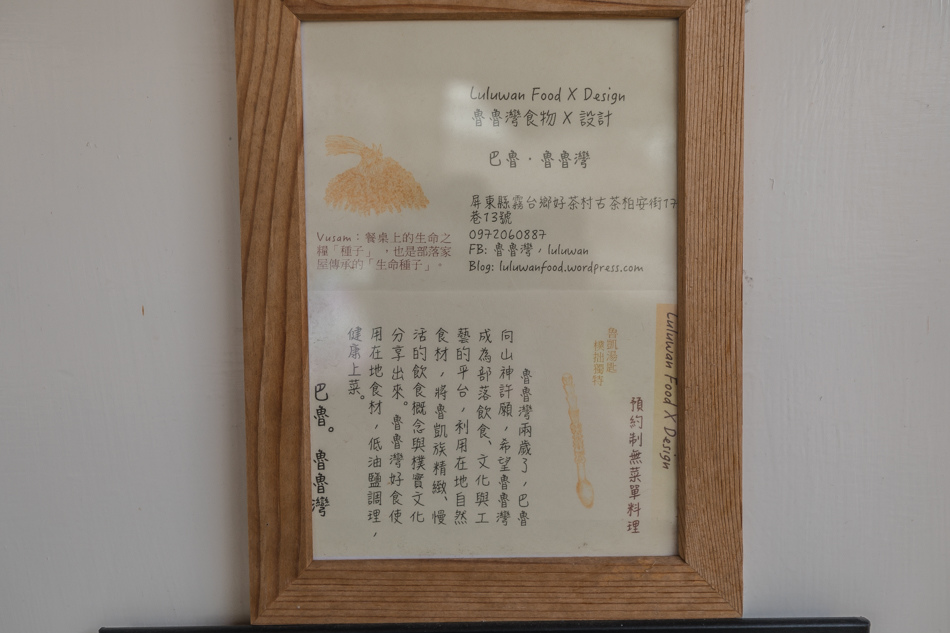 Luluwan Food X Design
魯魯灣食物 X 設計
巴魯·魯魯灣
屏東縣霧台鄉好茶村古茶柏安街17
巷13號
0972060887
FB: 魯魯灣,luluwan
Blog: luluwanfood.wordpress.com
Vusam:餐桌上的生命之
糧「種子」,也是部落家
屋傳承的「生命種子」。
Luluwan Food X Design
預約制無菜單料理
魯凱湯匙
樸拙獨特
魯魯灣兩歲了,巴魯
向山神許願,希望魯魯灣
成為部落飲食、文化與工
藝的平台,利用在地自然
食材,將魯凱族精緻、慢
活的飲食概念與樸實文化
分享出來。魯魯灣好食使
用在地食材,低油鹽調理,
健康上菜。
巴魯。魯魯灣